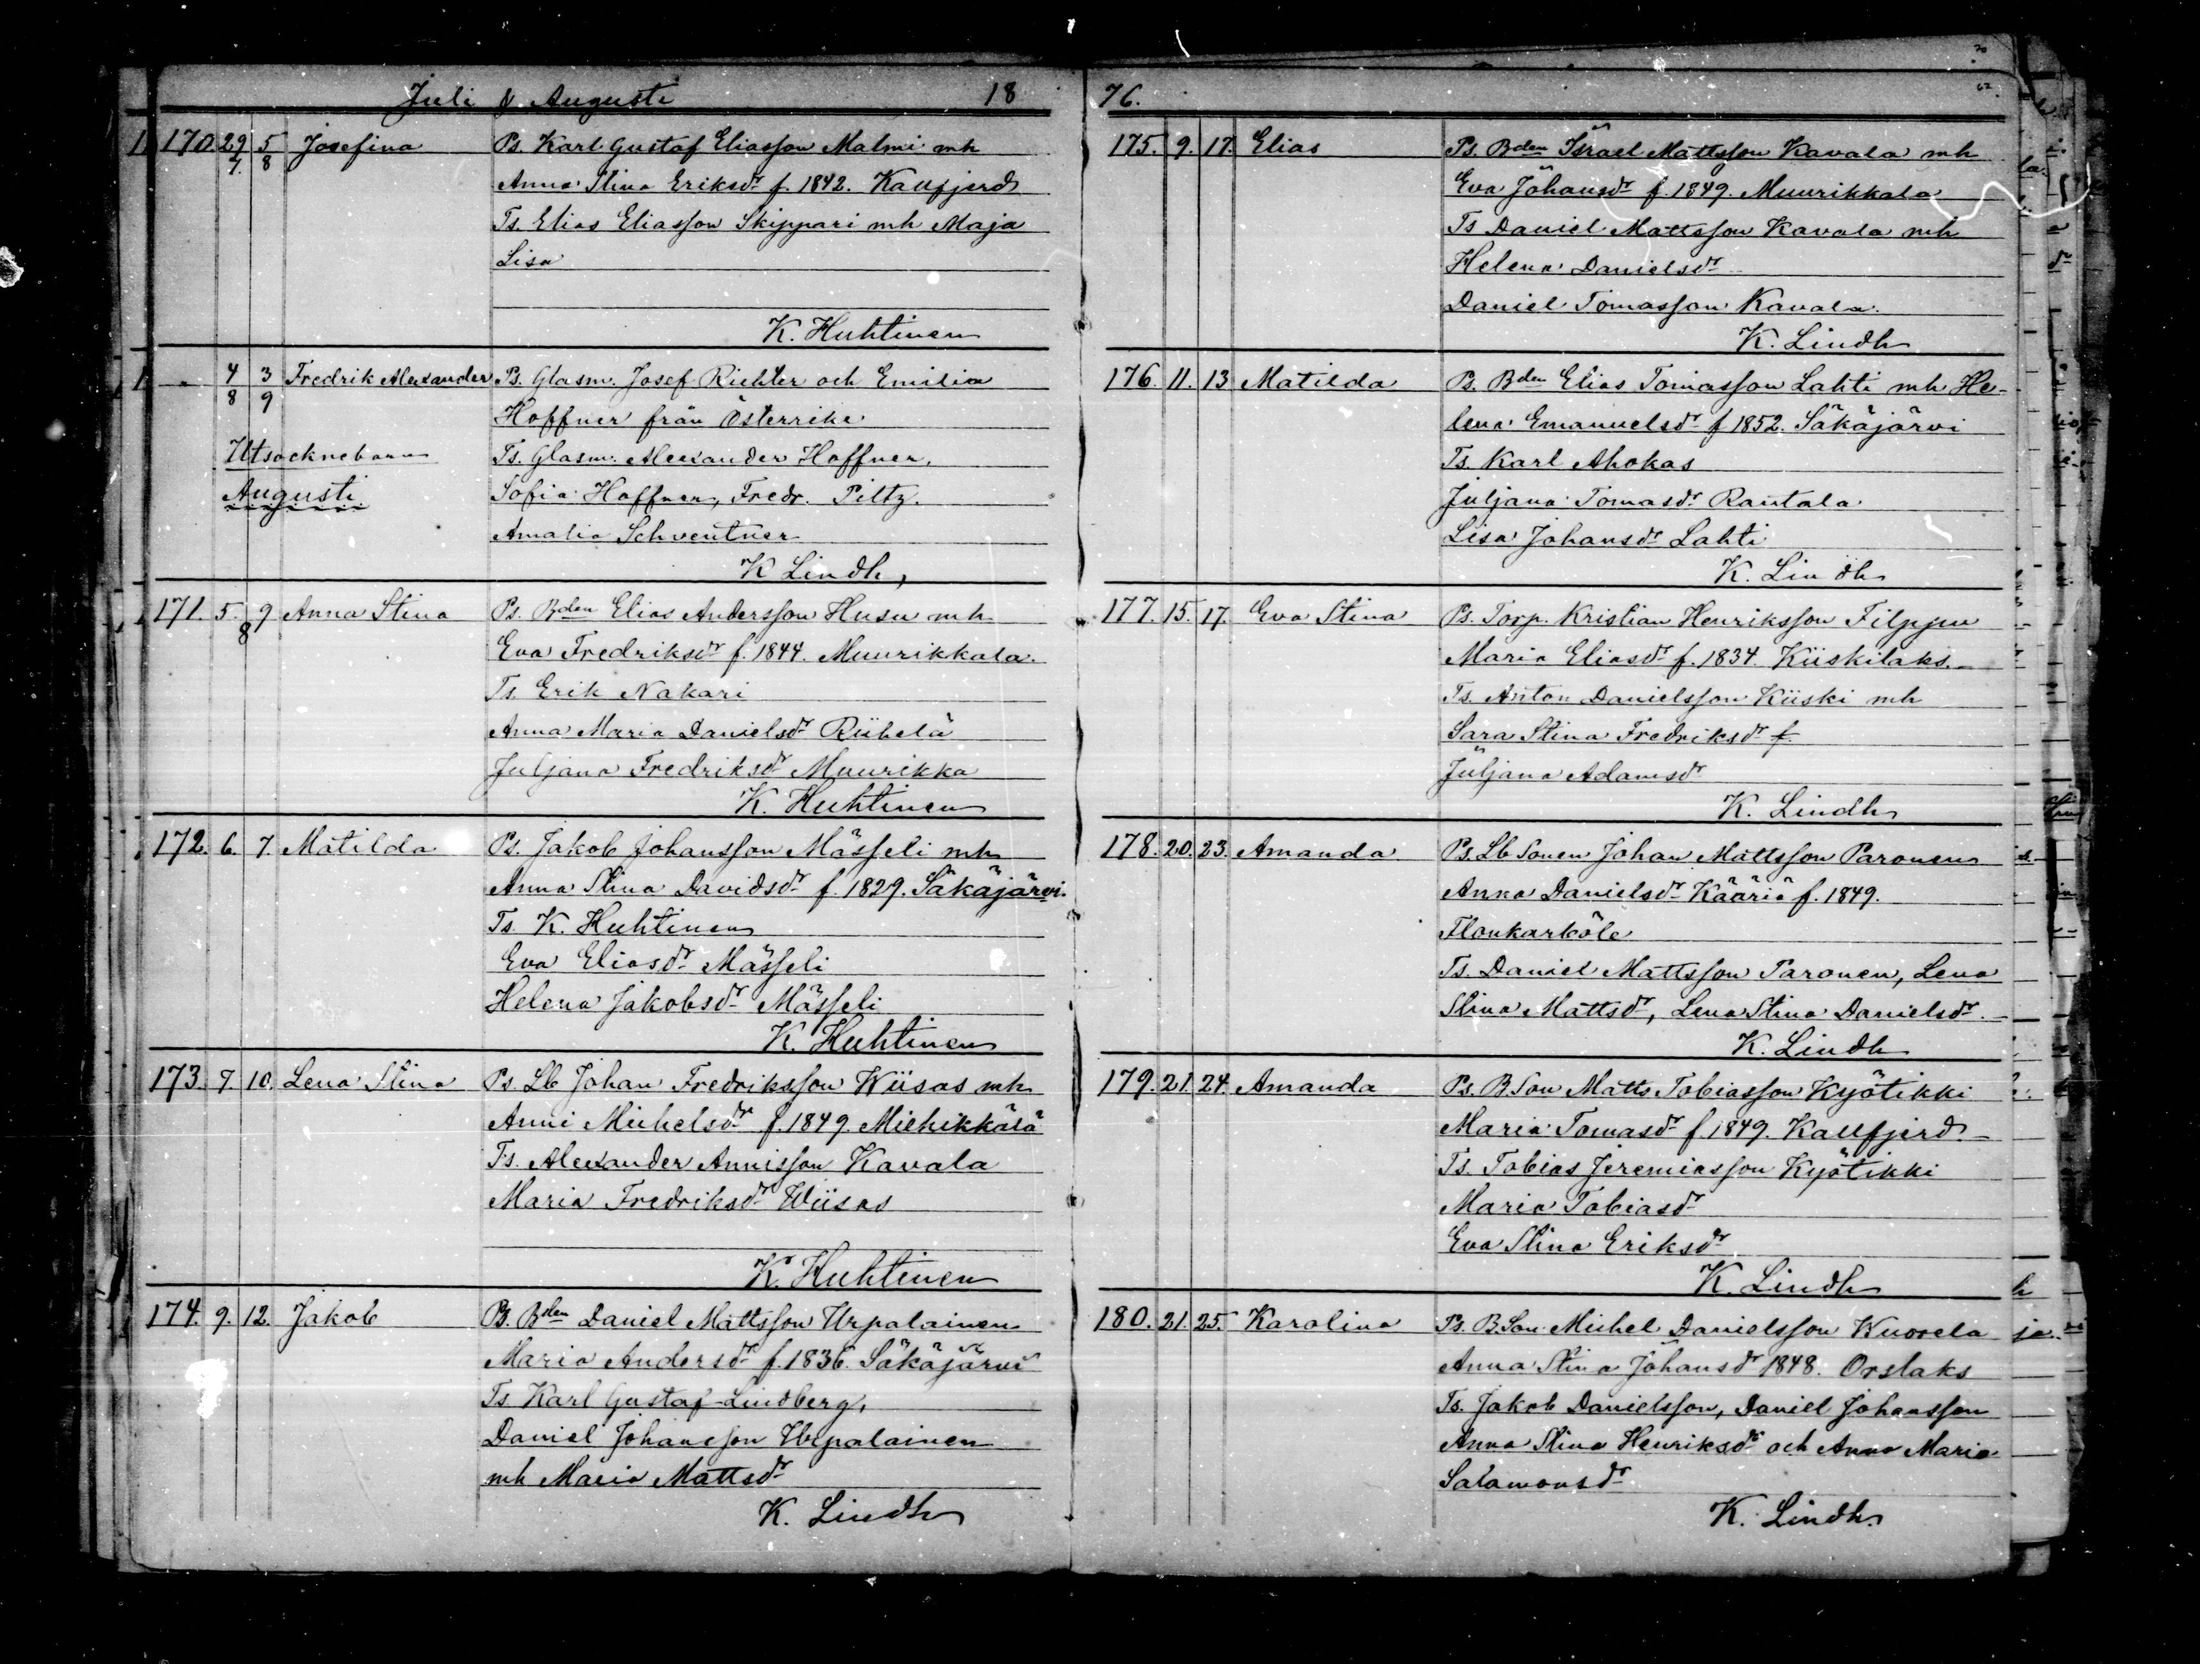 Juli & Augusti 18
170. 29/7. 5/8 Josefina Ps. Karl Gustaf Eliasson Malmi mh
Anna Stina Eriksdr f. 1842. Kallfjerd
Ts. Elias Eliasson Skippari mh Maja
Lisa
K. Huhtinen
4/8 3/9 Fredrik Alexander Ps. Glasm. Josef Richter och Emilia
Hoffner från Österrike
Utsocknebarn Ts. Glasm. Alexander Hoffner,
Augusti Sofia Hoffner, Fredr. Piltz.
Amalia Schventner
K Lindh,
171. 5. 9/8 Anna Stina Ps. Bden Elias Andersson Husu mh
Eva Fredriksdr f. 1844. Muurikkala.
Ts. Erik Nakari
Anna Maria Danielsdr Riihelä
Juljana Fredriksdr Muurikka
K. Huhtinen
172. 6. 7. Matilda Ps. Jakob Johansson Mässeli mh
Anna Stina Davidsdr f. 1829. Säkäjärvi.
Ts. K. Huhtinen
Eva Eliasdr Mässeli
Helena Jakobsdr Mässeli
K. Huhtinen
173. 7. 10. Lena Stina Ps. Lb Johan Fredriksson Wiisas mh
Anni Michelsdr f. 1849. Miehikkälä
Ts. Alexander Annisson Kavala
Maria Fredriksdr Wiisas
K. Huhtinen
174. 9. 12. Jakob Ps. Bden Daniel Mattsson Urpalainen
Maria Andersdr f. 1836. Säkäjärvi
Ts Karl Gustaf Lindberg,
Daniel Johansson Urpalainen
mh Maria Mattsdr
K. Lindh
76.
175. 9. 17. Elias Ps. Bden Israel Mattsson Kavala mh
Eva Johansdr f. 1849. Muurikkala
Ts Daniel Mattsson Kavala mh
Helena Danielsdr
Daniel Tomasson Kavala.
K. Lindh
176. 11. 13 Matilda Ps. Bden Elias Tomasson Lahti mh He-
lena Emanuelsdr f 1852. Säkäjärvi
Ts. Karl Ahokas
Juljana Tomasdr Rautala
Lisa Johansdr Lahti
K. Lindh
177. 15. 17. Eva Stina Ps. Torp. Kristian Henriksson Filppu
Maria Eliasdr f. 1834. Kiiskilaks.
Ts. Anton Danielsson Kiiski mh
Sara Stina Fredriksdr f.
Juljana Adamsdr
K. Lindh
178. 20. 23. Amanda Ps. Lb Sonen Johan Mattsson Paronen
Anna Danielsdr Kääriä f. 1849.
Flonkarböle
Ts. Daniel Mattsson Paronen, Lena
Stina Mattsdr, Lena Stina Danielsdr.
K. Lindh
179. 21. 24. Amanda Ps. B.Son Matts Tobiasson Kyötikki
Maria Tomasdr f. 1849. Kallfjerd.
Ts. Tobias Jeremiasson Kyötikki
Maria Tobiasdr
Eva Stina Eriksdr
K. Lindh
180. 21. 25. Karolina Ps. B.Son Michel Danielsson Wuorela
Anna Stina Johansdr 1848. Orslaks
Ts. Jakob Danielsson, Daniel Johansson
Anna Stina Henriksdr och Anna Maria
Salamonsdr
K. Lindh.